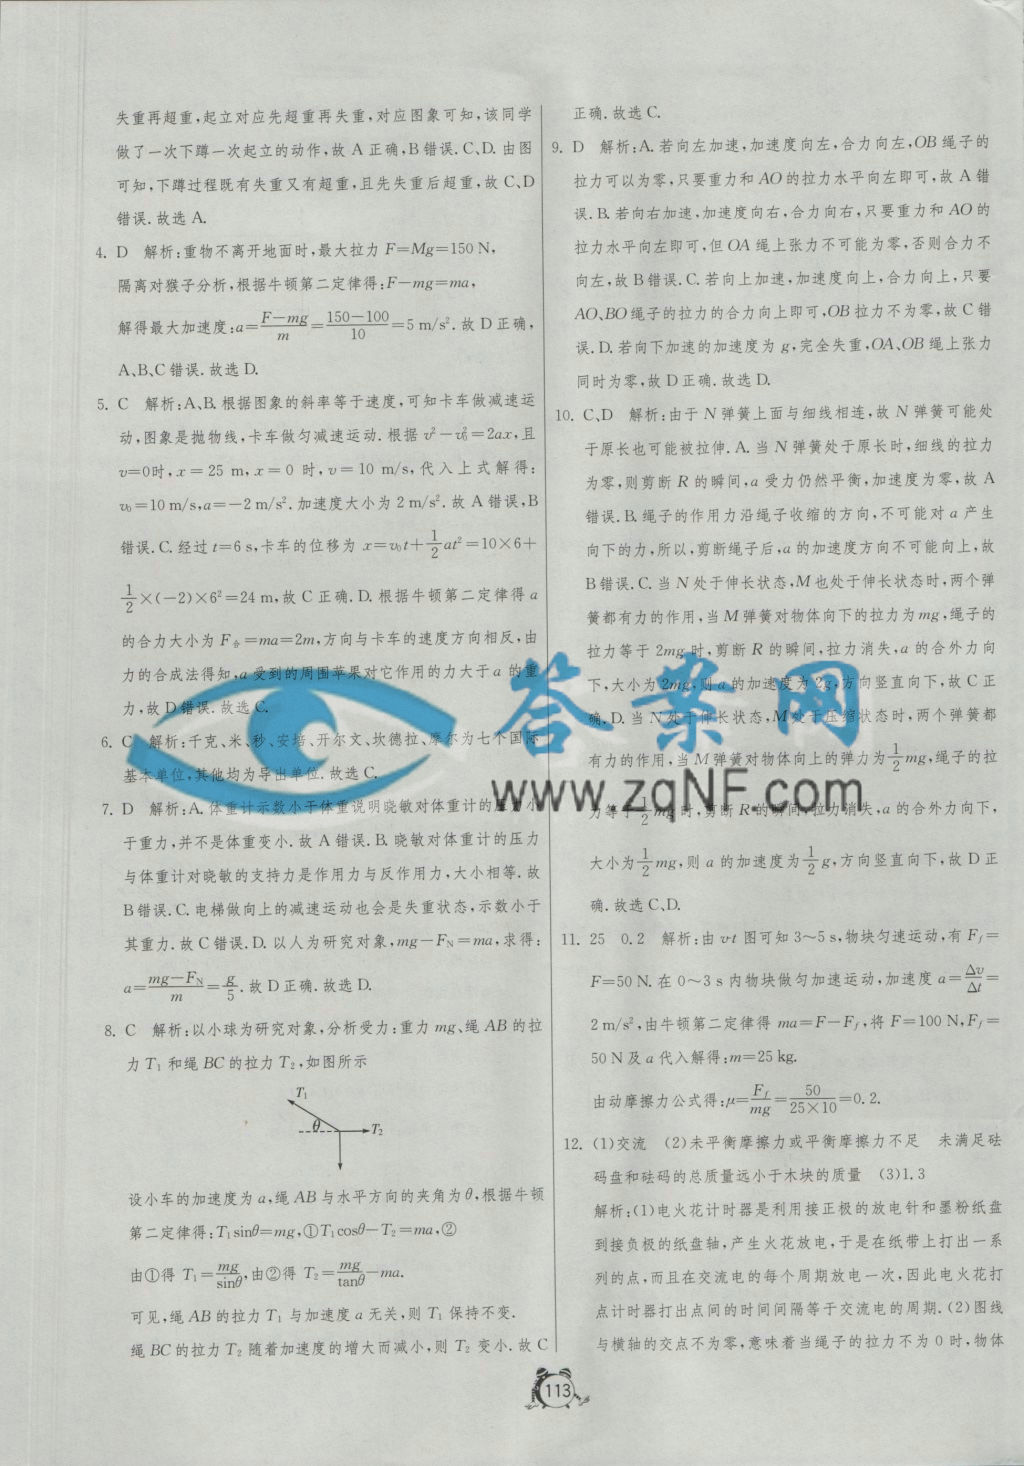 失重再超重,起立对应先超重再失重,对应图象可知,该同学
做了一次下蹲一次起立的动作,故 A 正确,B 错误.C、D. 由图
可知,下蹲过程既有失重又有超重,且先失重后超重,故 C、D
错误.故选 A.
4. D 解析:重物不离开地面时,最大拉力 F=Mg=150 N,
隔离对猴子分析,根据牛顿第二定律得:F-mg=ma,
解得最大加速度:a=(F-mg)/m=(150-100)/10=5 m/s².故 D 正确,
A、B、C 错误.故选 D.
5. C 解析:A、B. 根据图象的斜率等于速度,可知卡车做减速运
动,图象是抛物线,卡车做匀减速运动.根据 v²-v₀²=2ax,且
v=0时,x=25 m,x=0 时,v=10 m/s,代入上式解得:
v₀=10 m/s,a=-2 m/s².加速度大小为 2 m/s².故 A 错误,B
错误.C. 经过 t=6 s,卡车的位移为 x=v₀t+1/2at²=10×6+
1/2×(-2)×6²=24 m,故 C 正确.D. 根据牛顿第二定律得 a
的合力大小为 F合=ma=2m,方向与卡车的速度方向相反,由
力的合成法得知,a 受到的周围苹果对它作用的力大于 a 的重
力,故 D 错误.故选 C.
6. C 解析:千克、米、秒、安培、开尔文、坎德拉、摩尔为七个国际
基本单位,其他均为导出单位.故选 C.
7. D 解析:A. 体重计示数小于体重说明晓敏对体重计的压力小
于重力,并不是体重变小.故 A 错误.B. 晓敏对体重计的压力
与体重计对晓敏的支持力是作用力与反作用力,大小相等.故
B 错误.C. 电梯做向上的减速运动也会是失重状态,示数小于
其重力.故 C 错误.D. 以人为研究对象,mg-FN=ma,求得:
a=(mg-FN)/m=g/5.故 D 正确.故选 D.
8. C 解析:以小球为研究对象,分析受力:重力 mg、绳 AB 的拉
力 T₁ 和绳 BC 的拉力 T₂,如图所示
T₁
θ
T₂
设小车的加速度为 a,绳 AB 与水平方向的夹角为 θ,根据牛顿
第二定律得:T₁sinθ=mg,①T₁cosθ-T₂=ma,②
由①得 T₁=mg/sinθ,由②得 T₂=mg/tanθ-ma.
可见,绳 AB 的拉力 T₁ 与加速度 a 无关,则 T₁ 保持不变.
绳 BC 的拉力 T₂ 随着加速度的增大而减小,则 T₂ 变小.故 C
正确.故选 C.
9. D 解析:A. 若向左加速,加速度向左,合力向左,OB 绳子的
拉力可以为零,只要重力和 AO 的拉力水平向左即可,故 A 错
误.B. 若向右加速,加速度向右,合力向右,只要重力和 AO 的
拉力水平向左即可,但 OA 绳上张力不可能为零,否则合力不
向左,故 B 错误.C. 若向上加速,加速度向上,合力向上,只要
AO、BO 绳子的拉力的合力向上即可,OB 拉力不为零,故 C 错
误.D. 若向下加速的加速度为 g,完全失重,OA、OB 绳上张力
同时为零,故 D 正确.故选 D.
10. C、D 解析:由于 N 弹簧上面与细线相连,故 N 弹簧可能处
于原长也可能被拉伸.A. 当 N 弹簧处于原长时,细线的拉力
为零,则剪断 R 的瞬间,a 受力仍然平衡,加速度为零,故 A
错误.B. 绳子的作用力沿绳子收缩的方向,不可能对 a 产生
向下的力,所以,剪断绳子后,a 的加速度方向不可能向上,故
B 错误.C. 当 N 处于伸长状态,M 也处于伸长状态时,两个弹
簧都有力的作用,当 M 弹簧对物体向下的拉力为 mg,绳子的
拉力等于 2mg 时,剪断 R 的瞬间,拉力消失,a 的合外力向
下,大小为 2mg,则 a 的加速度为 2g,方向竖直向下,故 C 正
确.D. 当 N 处于伸长状态,M 处于压缩状态时,两个弹簧都
有力的作用,当 M 弹簧对物体向上的弹力为 1/2mg,绳子的拉
力等于 1/2mg 时,剪断 R 的瞬间,拉力消失,a 的合外力向下,
大小为 1/2mg,则 a 的加速度为 1/2g,方向竖直向下,故 D 正
确.故选 C、D.
11. 25 0.2 解析:由 v-t 图可知 3~5 s,物块匀速运动,有 Ff=
F=50 N. 在 0~3 s 内物块做匀加速运动,加速度 a=Δv/Δt=
2 m/s²,由牛顿第二定律得 ma=F-Ff,将 F=100 N,Ff=
50 N 及 a 代入解得:m=25 kg.
由动摩擦力公式得:μ=Ff/mg=50/(25×10)=0.2.
12. (1)交流 (2)未平衡摩擦力或平衡摩擦力不足 未满足砝
码盘和砝码的总质量远小于木块的质量 (3)1.3
解析:(1)电火花计时器是利用接正极的放电针和墨粉纸盘
到接负极的纸盘轴,产生火花放电,于是在纸带上打出一系
列的点,而且在交流电的每个周期放电一次,因此电火花打
点计时器打出点间的时间间隔等于交流电的周期.(2)图线
与横轴的交点不为零,意味着当绳子的拉力不为 0 时,物体
113
答案网
www.zqNF.com